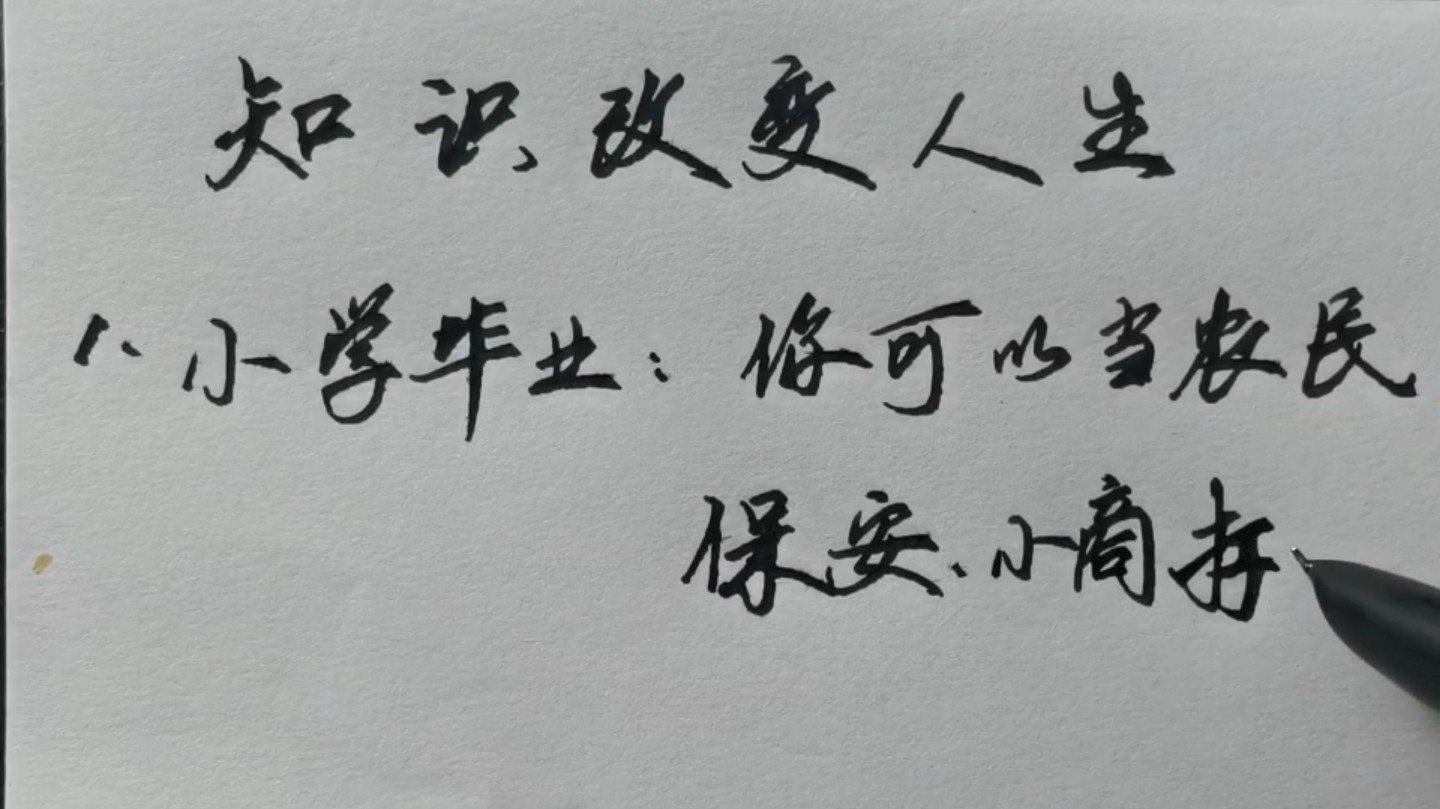 知识改变人生
1、小学毕业：你可以当农民
保安、小商